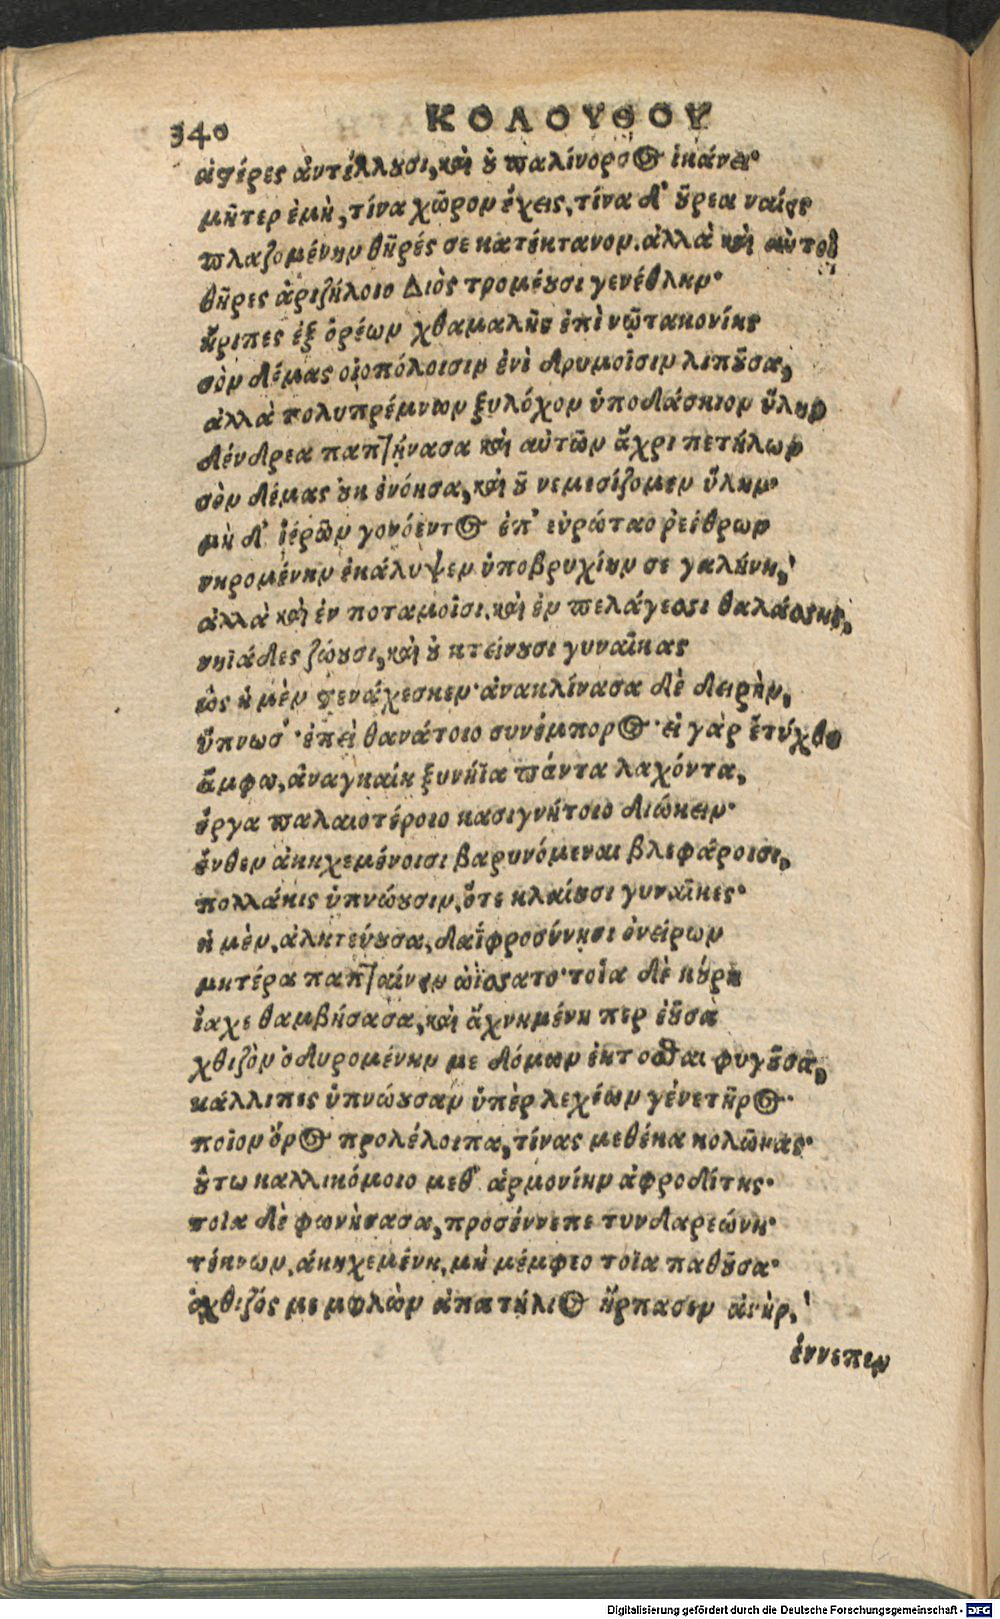 340
ΚΟΛΟΥΘΟΥ
ἀστέρες ἀντέλλουσι, καὶ οὐ παλίνορσος ἱκάνει·
μῆτερ ἐμὴ, τίνα χῶρον ἔχεις, τίνα δ' οὔρεα ναίεις
πλαζομένην θῆρές σε κατέκτανον. ἀλλὰ καὶ αὐτοὶ
θῆρες ἀριζήλοιο Διὸς τρομέουσι γενέθλην·
ἤριπες ἐξ ὀρέων χθαμαλῆς ἐπὶ νῶτα κονίης
σὸν δέμας οἰοπόλοισιν ἐνὶ δρυμοῖσιν λιποῦσα,
ἀλλὰ πολυπρέμνων ξυλόχον ὑποδάσκιον ὕλην
δένδρεα παπτήνασα καὶ αὐτῶν ἄχρι πετήλων
σὸν δέμας οὐκ ἐνόησα, καὶ οὐ νεμεσίζομεν ὕλην·
μὴ δ' ἱερῶν γονόεντος ἐπ' εὐρώταο ῥεέθρων
νηρομένην ἐκάλυψεν ὑποβρυχίην σε γαλήνη,
ἀλλὰ καὶ ἐν ποταμοῖσι. καὶ ἐν πελάγεσσι θαλάσσης,
νηϊάδες ζώουσι, καὶ οὐ κτείνουσι γυναῖκας
ὣς ἡ μὲν στενάχεσκεν· ἀνακλίνασα δὲ δειρὴν,
ὕπνωσ'· ἐπεὶ θανάτοιο συνέμπορος· εἰ γὰρ ἐτύχθη
ἄμφω, ἀναγκαίη ξυνήϊα πάντα λαχόντα,
ἔργα παλαιοτέροιο κασιγνήτοιο διώκειν·
ἔνθεν ἀκηχεμένοισι βαρυνόμεναι βλεφάροισι,
πολλάκις ὑπνώουσιν, ὅτε κλαίουσι γυναῖκες·
ἡ μὲν, ἀλητεύουσα, δαϊφροσύνῃσι ὀνείρων
μητέρα παπταίνειν ὠΐσσατο· τοῖα δὲ κούρη
ἴαχε θαμβήσασα, καὶ ἀχνημένη περ ἐοῦσὰ
χθιζὸν ὀδυρομένην με δόμων ἔκτοσθαι φυγοῦσα,
κάλλιπες ὑπνώουσαν ὑπὲρ λεχέων γένετῆρος·
ποῖον ὄρος προλέλοιπα, τίνας μεθέηκα κολώνας·
οὕτω καλλικόμοιο μεθ' ἁρμονίην ἀφροδίτης·
τοῖα δὲ φωνήσασα, προσέννεπε τυνδαρεώνη·
τέκνων, ἀκηχεμένη, μὴ μέμφεο τοῖα παθοῦσα·
ὀχθιζός με μολὼν ἀπατήλιος ἥρπασεν ἀνὴρ,
ἔννεπεν
Digitalisierung gefördert durch die Deutsche Forschungsgemeinschaft - DFG